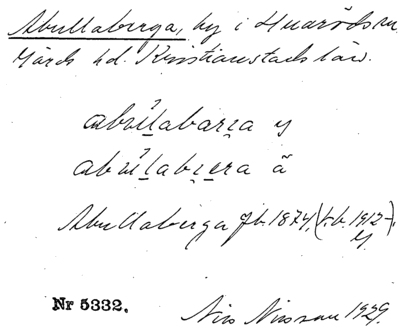 Abullaberga, by i Huaröds sn.
Gärds hd. Kristianstads län.
abulabarıa y
abulabıera ä
Abullabärga jb. 1874, (k.b. 1912–).
Nr 5332.
Nils Nilsson 1929.